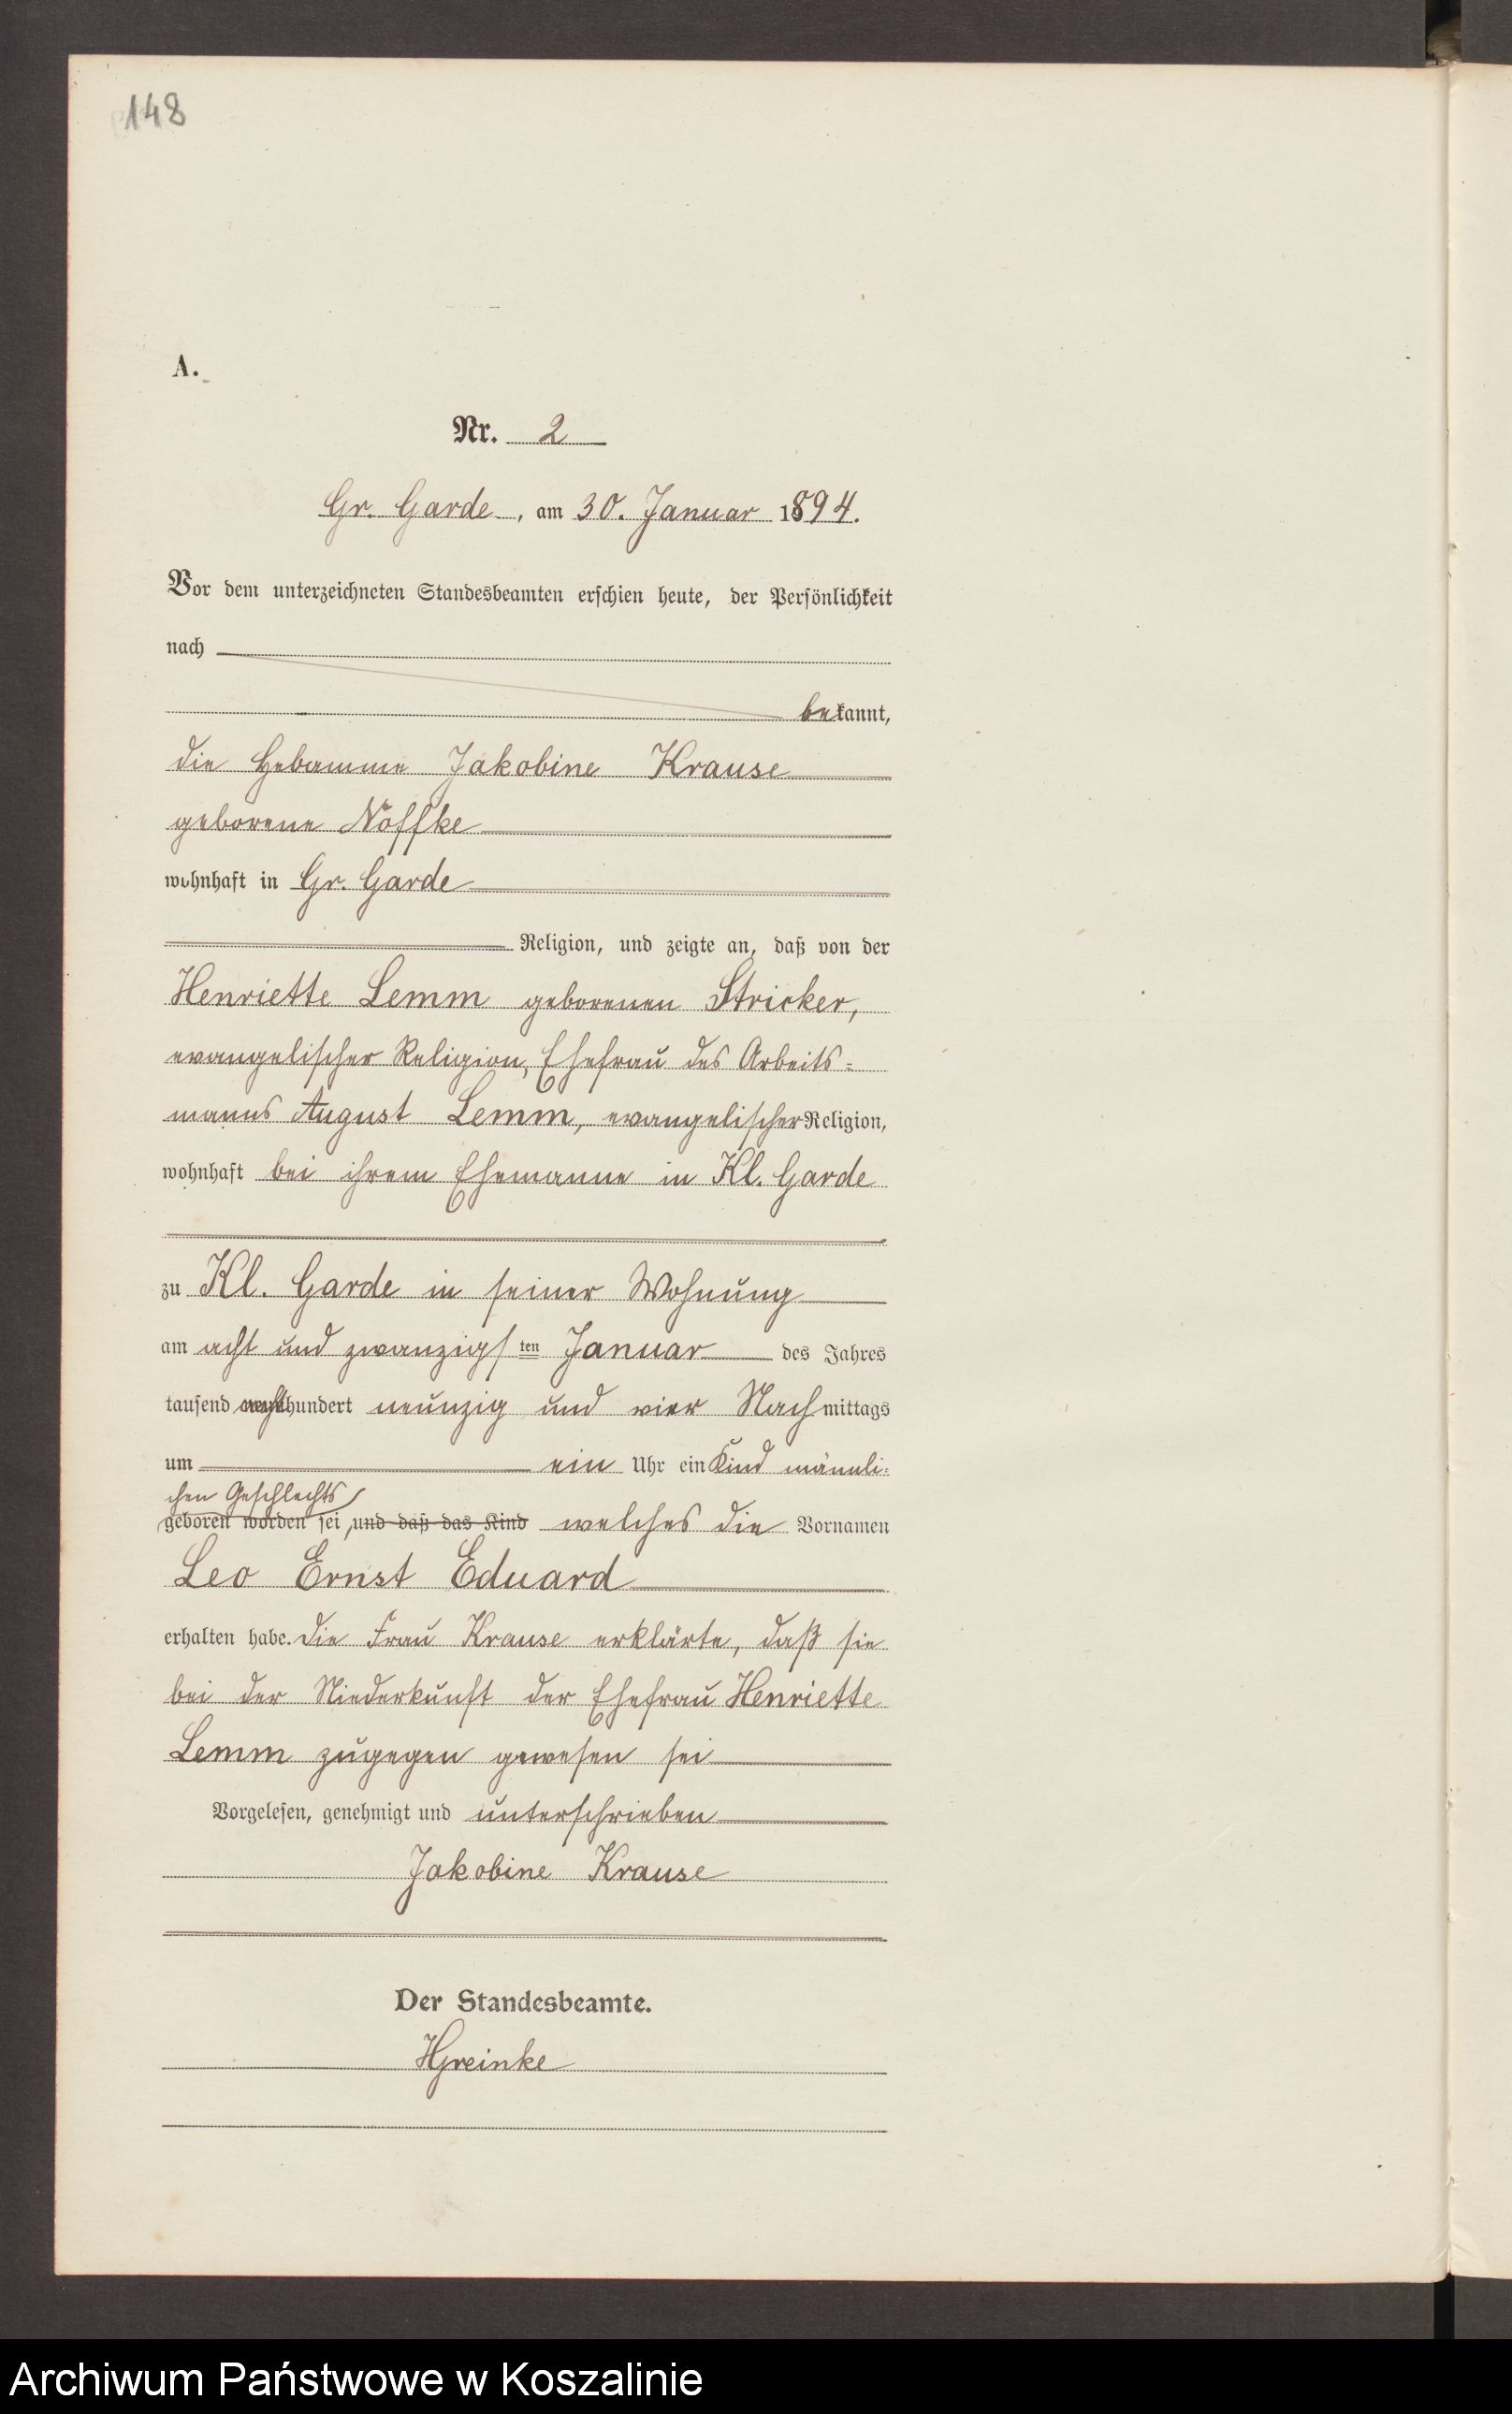 148
A.
Nr. 2
Gr. Garde, am 30. Januar 1894.
Vor dem unterzeichneten Standesbeamten erschien heute, der Persönlichkeit
nach
bekannt,
die Hebamme Jakobine Krause
geborene Noffke
wohnhaft in Gr. Garde
Religion, und zeigte an, daß von der
Henriette Lemm geborenen Stricker,
evangelischer Religion, Ehefrau des Arbeits=
manns August Lemm, evangelischer Religion,
wohnhaft bei ihrem Ehemanne in Kl. Garde
zu Kl. Garde in seiner Wohnung
am acht und zwanzigsten Januar des Jahres
tausend achthundert neunzig und vier Nachmittags
um ein Uhr ein Kind männli=
chen Geschlechts
geboren worden sei, und daß das Kind welches die Vornamen
Leo Ernst Eduard
erhalten habe. Die Frau Krause erklärte, daß sie
bei der Niederkunft der Ehefrau Henriette
Lemm zugegen gewesen sei
Vorgelesen, genehmigt und unterschrieben
Jakobine Krause
Der Standesbeamte.
HGreinke
Archiwum Państwowe w Koszalinie